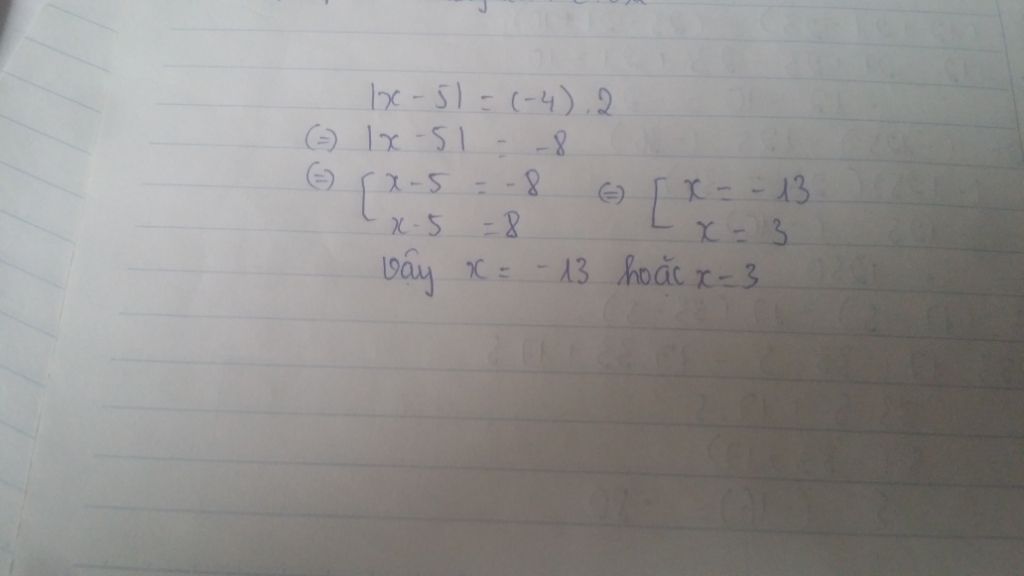 |x - 5| = (-4) . 2
(=) |x - 5| = -8
(=) [ x - 5 = -8 (=) [ x = - 13
x - 5 = 8 x = 3
Vậy x = - 13 hoặc x = 3